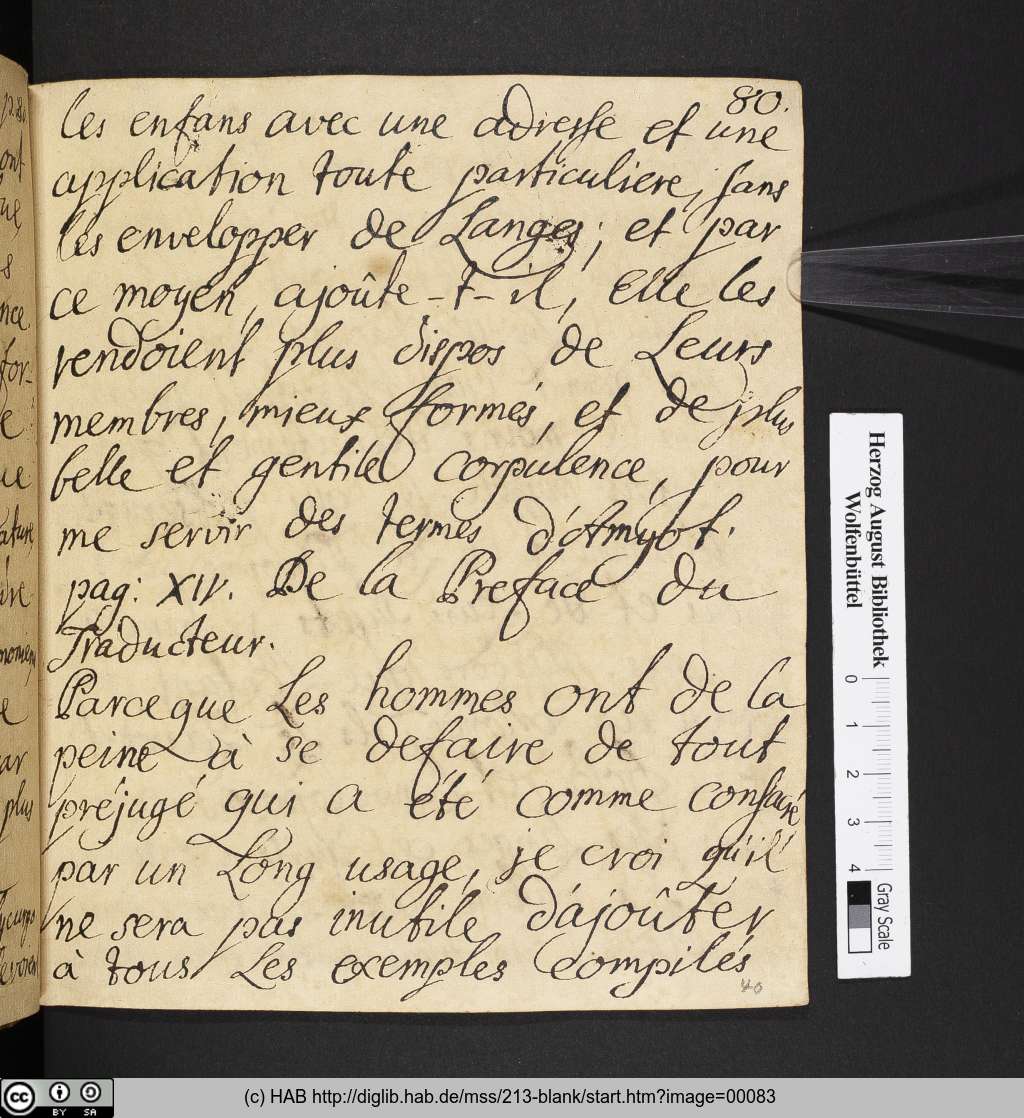 80.
les enfans avec une adresse et une
application toute particuliere, sans
les envelopper de Langes; et par
ce moyen, ajoûte-t-il, Elle les
rendoient plus dispos de Leurs
membres, mieux formés, et de plus
belle et gentile corpulence, pour
me servir des termes d'Amyot.
pag: XIV. De la Preface du
Traducteur.
Parceque Les hommes ont de la
peine à se defaire de tout
préjugé qui a été comme consacré
par un Long usage, je croi qu'il
ne sera pas inutile d'ajoûter
à tous Les exemples compilés
40
Herzog August Bibliothek
Wolfenbüttel
0 1 2 3 4
Gray Scale
cc BY SA
(c) HAB http://diglib.hab.de/mss/213-blank/start.htm?image=00083